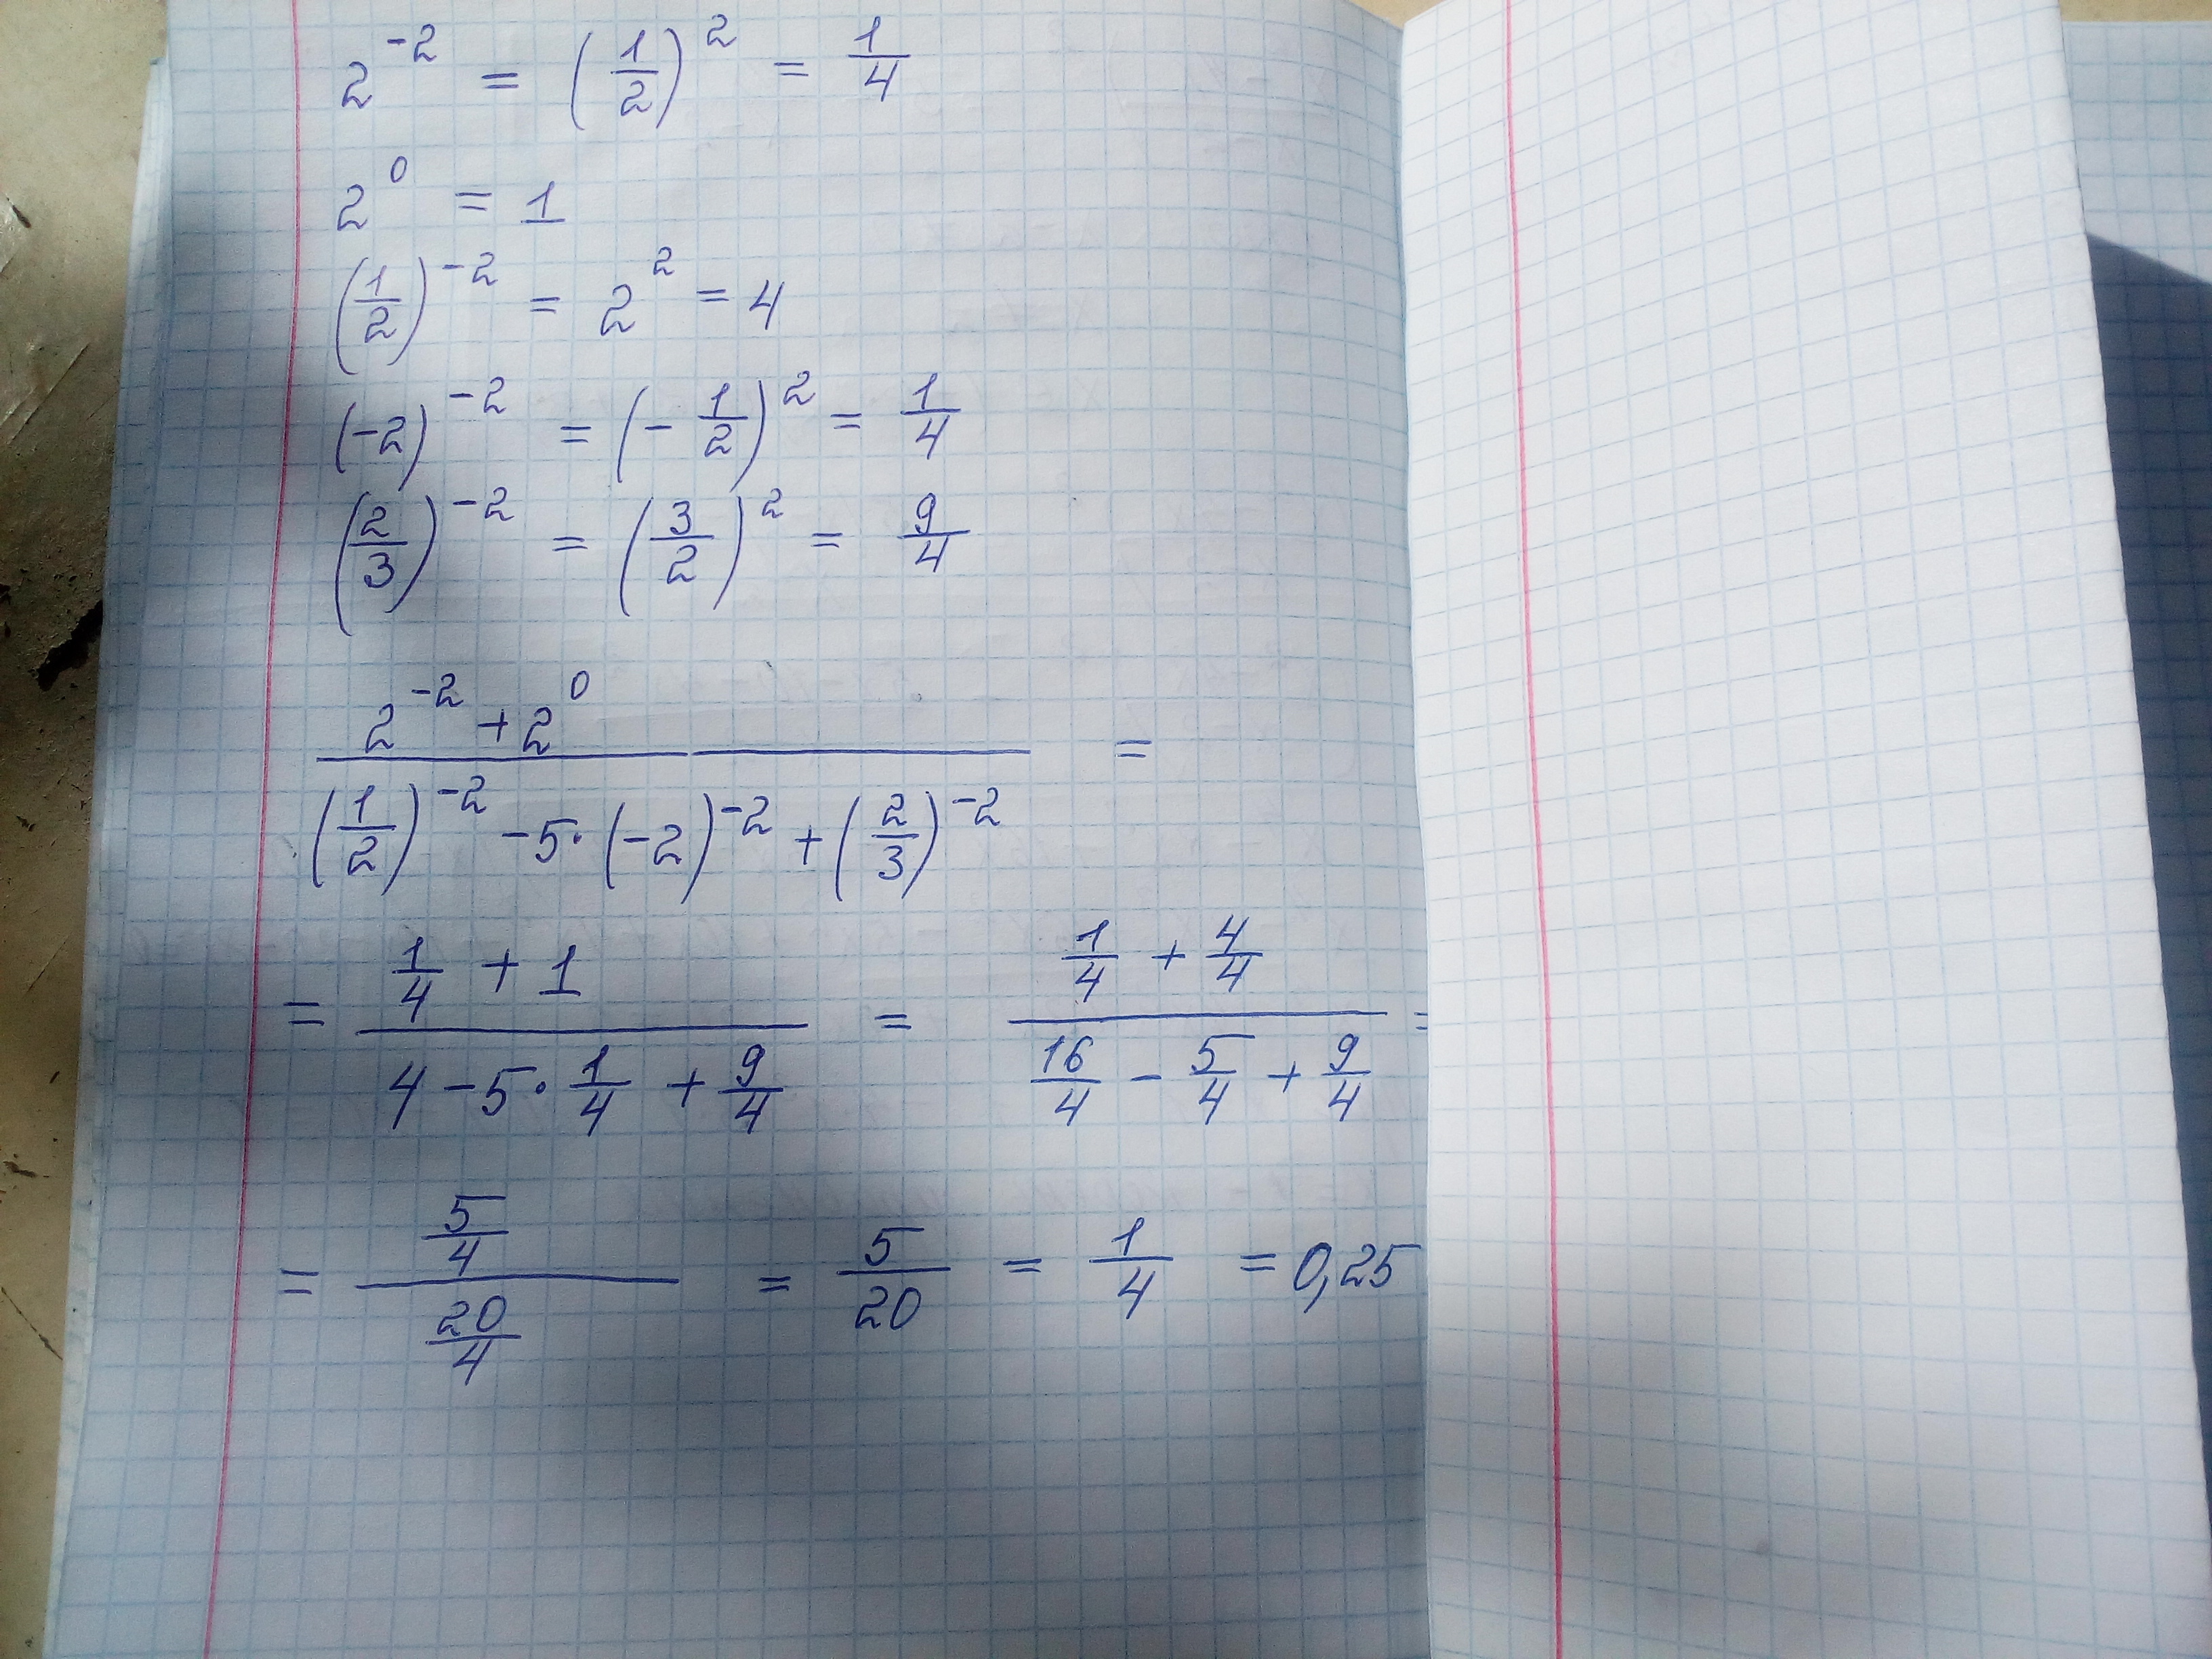 2^-2 = (1/2)^2 = 1/4
2^0 = 1
(1/2)^-2 = 2^2 = 4
(-2)^-2 = (-1/2)^2 = 1/4
(2/3)^-2 = (3/2)^2 = 9/4
(2^-2 + 2^0) / ((1/2)^-2 - 5·(-2)^-2 + (2/3)^-2) =
= (1/4 + 1) / (4 - 5·1/4 + 9/4) = (1/4 + 4/4) / (16/4 - 5/4 + 9/4) =
= (5/4) / (20/4) = 5/20 = 1/4 = 0,25